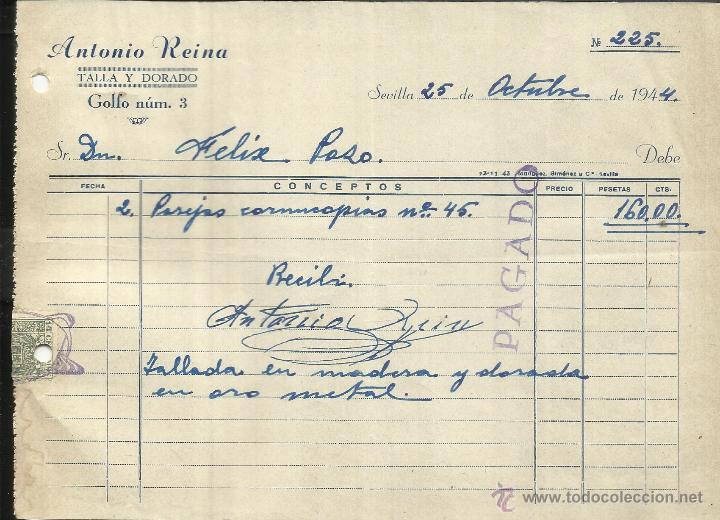 Antonio Reina
TALLA Y DORADO
Golfo núm. 3
№ 225.
Sevilla 25 de Octubre de 1944.
Sr. Dn. Felix Pozo. Debe
FECHA CONCEPTOS PRECIO PESETAS CTS.
2. Parejas cornucopias nº 45. 160,00.
PAGADO
Recibí.
Antonio Reina
Tallada en madera y dorada
en oro metal.
www.todocoleccion.net